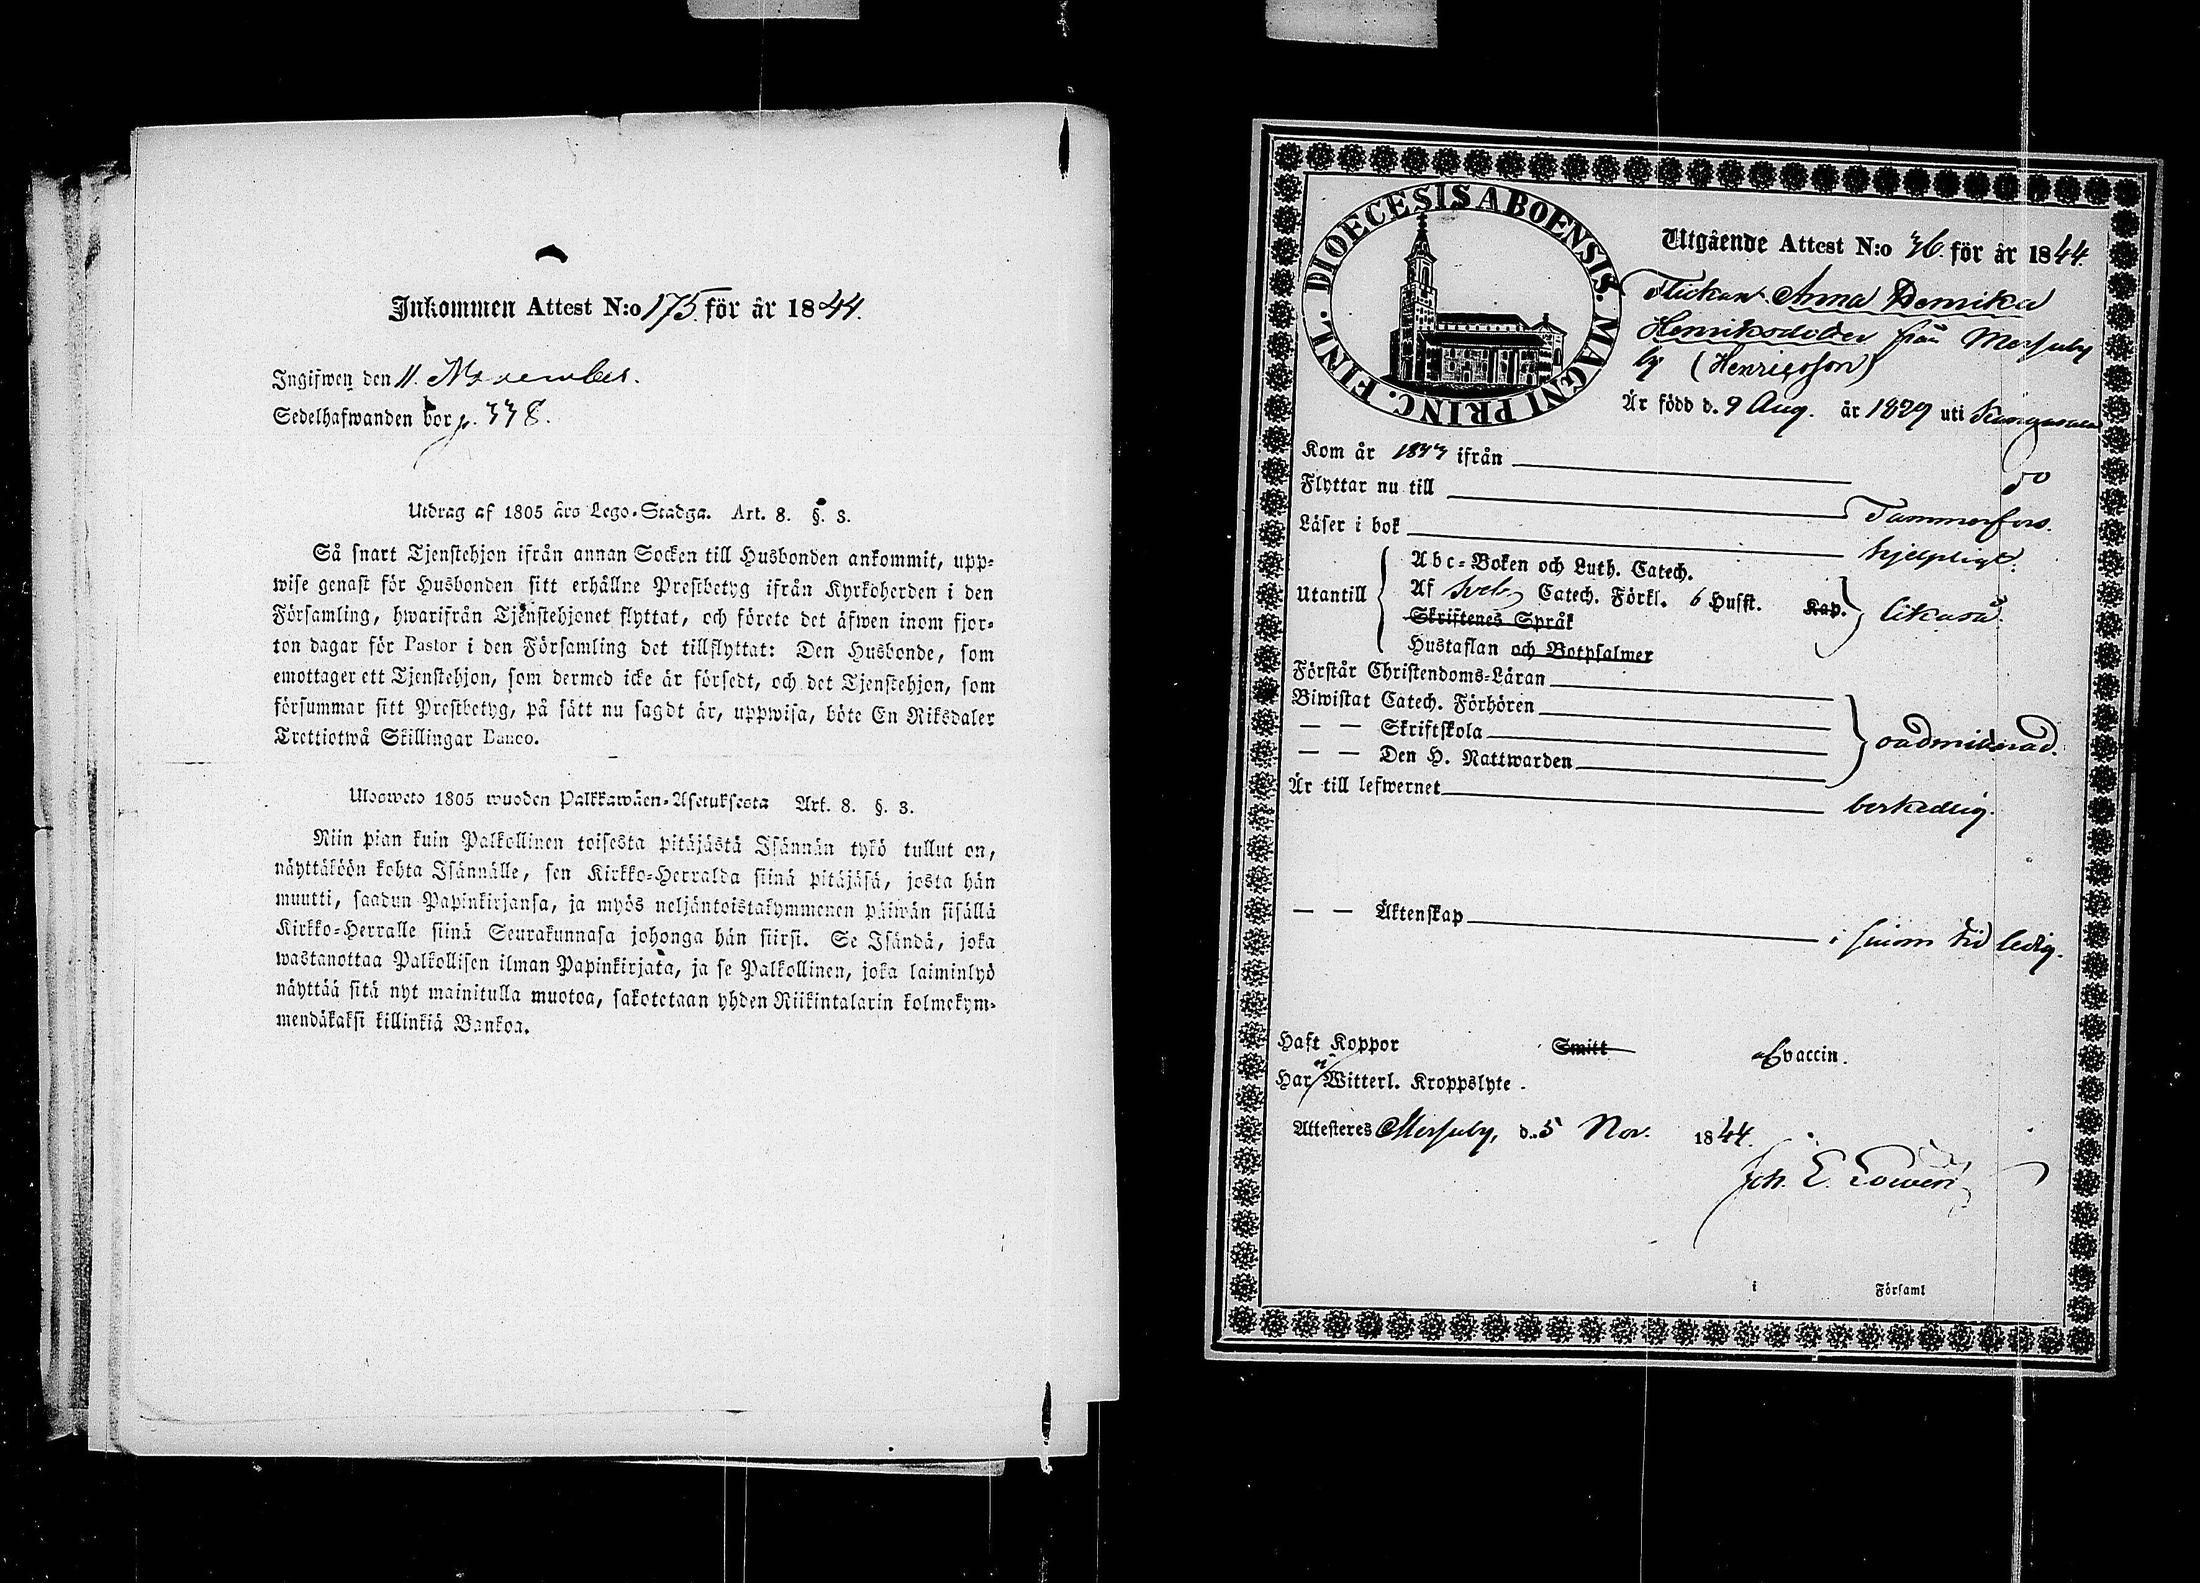 Inkommen Attest N:o 175. för år 1844.
Ingifwen den 11. November.
Sedelhafwanden bor p. 338.
Utdrag af 1805 års Lego-Stadga. Art. 8. §. 3.
Så snart Tjenstehjon ifrån annan Socken till Husbonden ankommit, upp-
wise genast för Husbonden sitt erhållne Prestbetyg ifrån Kyrkoherden i den
Församling, hwarifrån Tjenstehjonet flyttat, och förete det äfwen inom fjor-
ton dagar för Pastor i den Församling det tillflyttat: Den Husbonde, som
emottager ett Tjenstehjon, som dermed icke är försedt, och det Tjenstehjon, som
försummar sitt Prestbetyg, på sätt nu sagdt är, uppwisa, böte En Riksdaler
Trettiotwå Skillingar Banco.
Ulosweto 1805 wuoden Palkkawäen-Asetuksesta Art. 8. §. 3.
Niin pian kuin Palkollinen toisesta pitäjästä Isännän tykö tullut on,
näyttäköön kohta Isännälle, sen Kirkko-Herralda siinä pitäjäsä, josta hän
muutti, saadun Papinkirjansa, ja myös neljäntoistakymmenen päiwän sisällä
Kirkko-Herralle siinä Seurakunnasa johonga hän siirsi. Se Isändä, joka
wastanottaa Palkollisen ilman Papinkirjata, ja se Palkollinen, joka laiminlyö
näyttää sitä nyt mainitulla muotoa, sakotetaan yhden Riikintalarin kolmekym-
mendäkaksi killinkiä Bankoa.
DIOECESIS ABOENSIS. MAGNI PRINC. FINL.
Utgående Attest N:o 36. för år 1844.
Flickan Anna Henrika
Henriksdotter från Messuby
by (Henricsson)
Är född d. 9 Aug. år 1829 uti Kangasala
Kom år 1833 ifrån do
Flyttar nu till Tammerfors.
Läser i bok hjelpligt.
Abc-Boken och Luth. Catech.
Utantill Af Sveb. Catech. Förkl. 6 Husst. Kap. likaså.
Skriftenes Språk
Hustaflan och Botpsalmer
Förstår Christendoms-Läran
Biwistat Catech. Förhören
— — Skriftskola oadmitterad.
— — Den H. Nattwarden
Är till lefwernet beskedlig.
— — Äktenskap i sinom tid ledig.
Haft Koppor Smitt Vaccin.
Har ej Witterl. Kroppslyte.
Attesteres Messuby, d. 5 Nov. 1844.
Joh. E.
i Församl